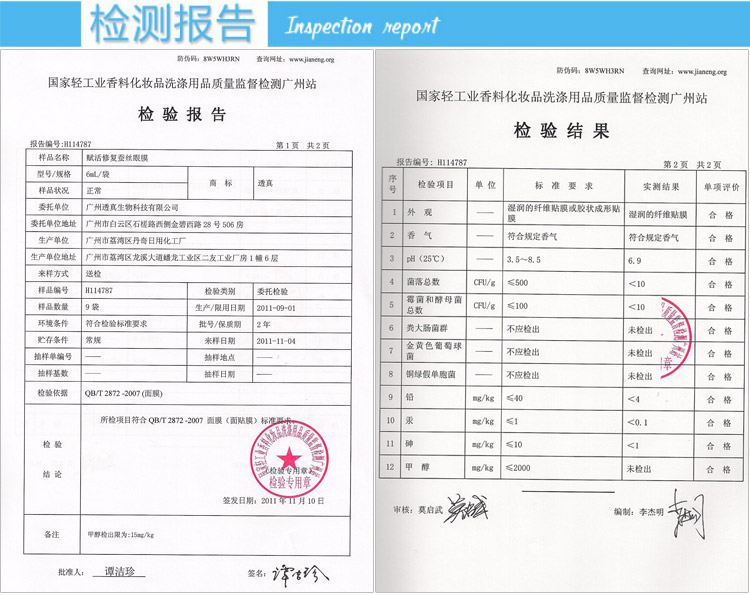 检测报告 Inspection report
防伪码: 8W5WH3RN 查询网址: www.jianeng.org
国家轻工业香料化妆品洗涤用品质量监督检测广州站
检 验 报 告
报告编号:H114787 第 1 页 共 2 页
样品名称 赋活修复蚕丝眼膜
型号/规格 6mL/袋 商 标 透真
样品状况 正常
委托单位 广州透真生物科技有限公司
委托单位地址 广州市白云区石槎路西侧金碧西路 28 号 506 房
生产单位 广州市荔湾区丹奇日用化工厂
生产单位地址 广州市荔湾区龙溪大道蟠龙工业区二友工业厂房 1 幢 6 层
来样方式 送检
样品编号 H114787 检验类别 委托检验
样品数量 9 袋 生产/限用日期 2011-09-01
环境条件 符合检验标准要求 批号/保质期 2 年
贮存条件 常规 来样日期 2011-11-04
抽样单编号 —— 抽样地点 ——
抽样基数 —— 抽样日期 ——
检验依据 QB/T 2872 -2007 (面膜)
检 验 结 论
所检项目符合 QB/T 2872 -2007 面膜（面贴膜）标准要求。
(检验专用章)
检验专用章
签发日期: 2011 年 11 月 10 日
备注 甲醇检出限为:15mg/kg
批准人: 谭洁珍 签名:
防伪码: 8W5WH3RN 查询网址: www.jianeng.org
国家轻工业香料化妆品洗涤用品质量监督检测广州站
检 验 结 果
报告编号: H114787 第 2 页 共 2 页
序号 检验项目 单 位 标 准 要 求 实测结果 单项评价
1 外 观 —— 湿润的纤维贴膜或胶状成形贴膜 湿润的纤维贴膜 合 格
2 香 气 —— 符合规定香气 符合规定香气 合 格
3 pH (25℃) —— 3.5~8.5 6.9 合 格
4 菌落总数 CFU/g ≤500 <10 合 格
5 霉菌和酵母菌总数 CFU/g ≤100 <10 合 格
6 粪大肠菌群 —— 不应检出 未检出 合 格
7 金黄色葡萄球菌 —— 不应检出 未检出 合 格
8 铜绿假单胞菌 —— 不应检出 未检出 合 格
9 铅 mg/kg ≤40 <4 合 格
10 汞 mg/kg ≤1 <0.1 合 格
11 砷 mg/kg ≤10 <1 合 格
12 甲 醇 mg/kg ≤2000 未检出 合 格
审核: 莫启武 编制: 李杰明